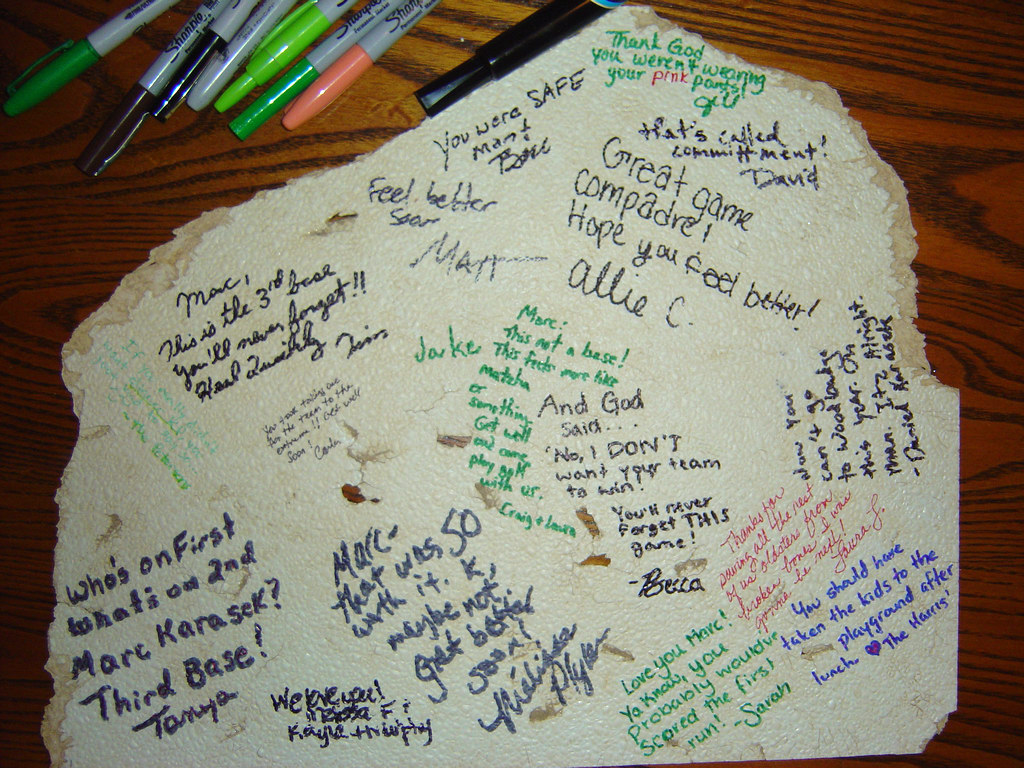 Sharpie
Sharpie
Sharpie
Thank God
you weren't wearing
your pink pants!
You were SAFE
Man!
that's called
committment!
David
Great game
compadre!
Hope you feel better!
Allie C.
Feel better
Soon
Matt
Marc,
This is the 3rd base
you'll never forget!!
Heal Quickly
Marc:
This not a base!
This feels more like
matzha
or
something
Get well
and come
play golf
with us.
Craig + Laura
You took taking one
for the team to the
extreme!! Get well
Soon!
And God
said...
"No, I DON'T
want your team
to win!
You'll never
forget THIS
game!
-Becca
Now you
can't go
to woodbadge
this year. Oh
man. Itz Alright.
-Daniel Karasek
Thanks for
saving all the rest
of us oldsters from
broken bones! I was
gonna be next!
Laura L.
You should have
taken the kids to the
playground after
lunch ♥ The Harris'
Love you Marc!
Ya Know, you
Probably would've
Scored the first
run!
-Sarah
Marc-
that was SO
worth it. K,
maybe not,
get better
soon!
Melissa
Who's on First
What's on 2nd
Marc Karasek?
Third Base!
Tanya
We love you!
Kayla